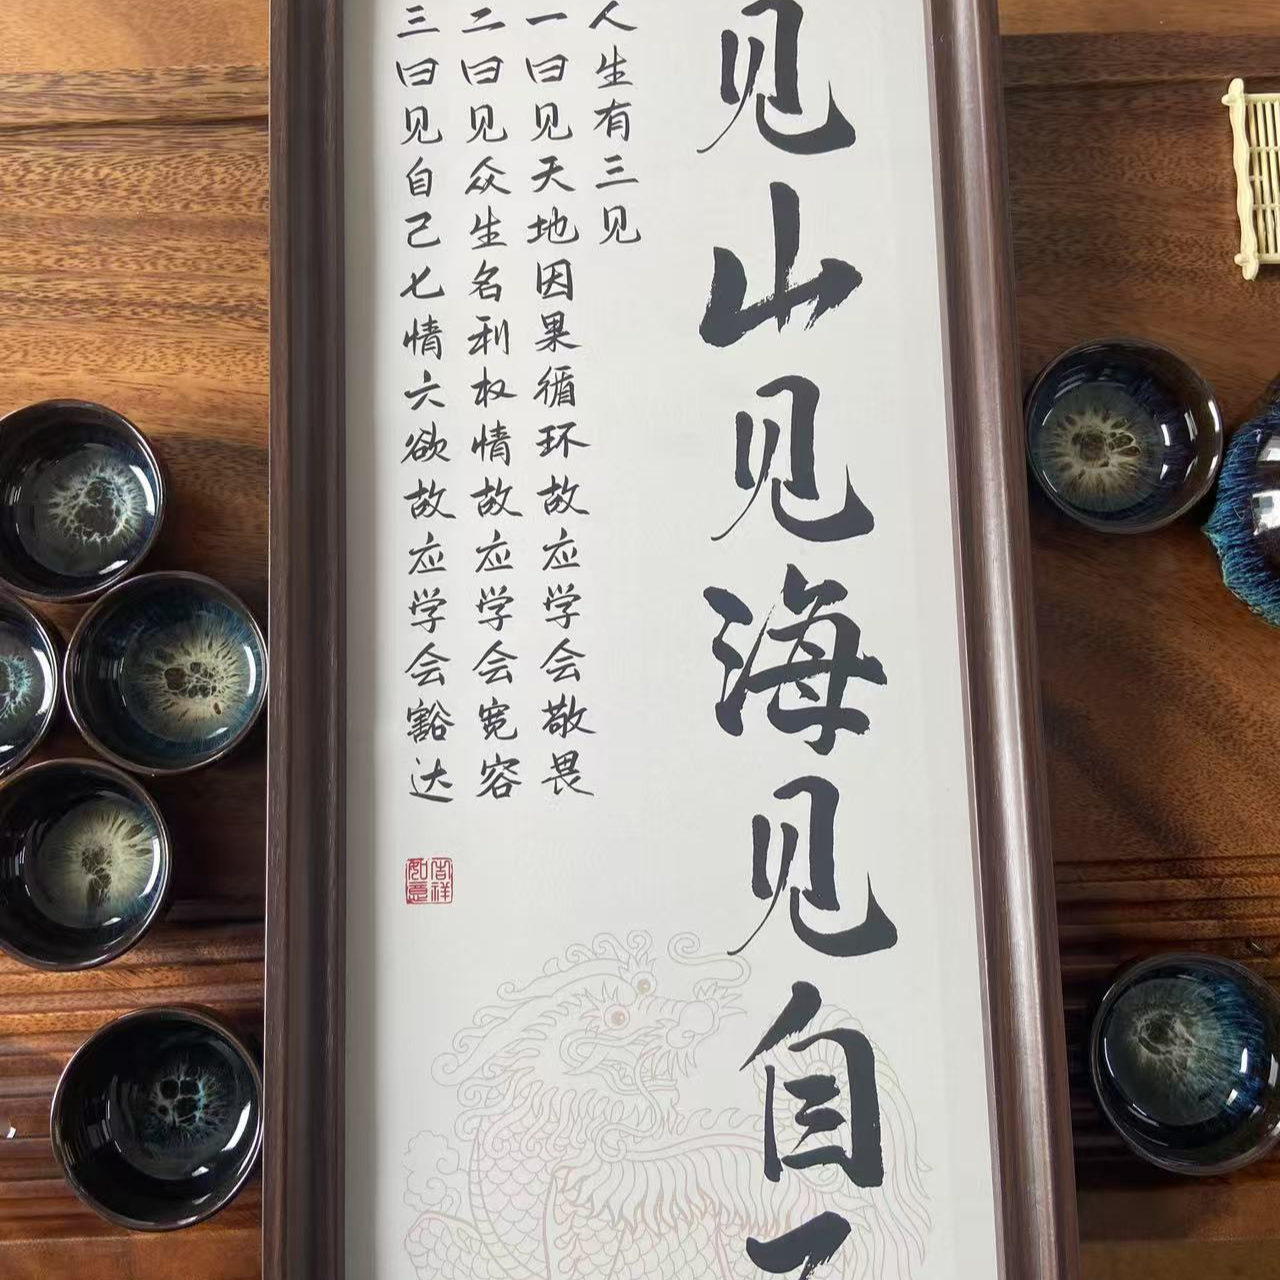 见山见海见自己
人生有三见
一曰见天地因果循环故应学会敬畏
二曰见众生名利权情故应学会宽容
三曰见自己七情六欲故应学会豁达
吉祥如意